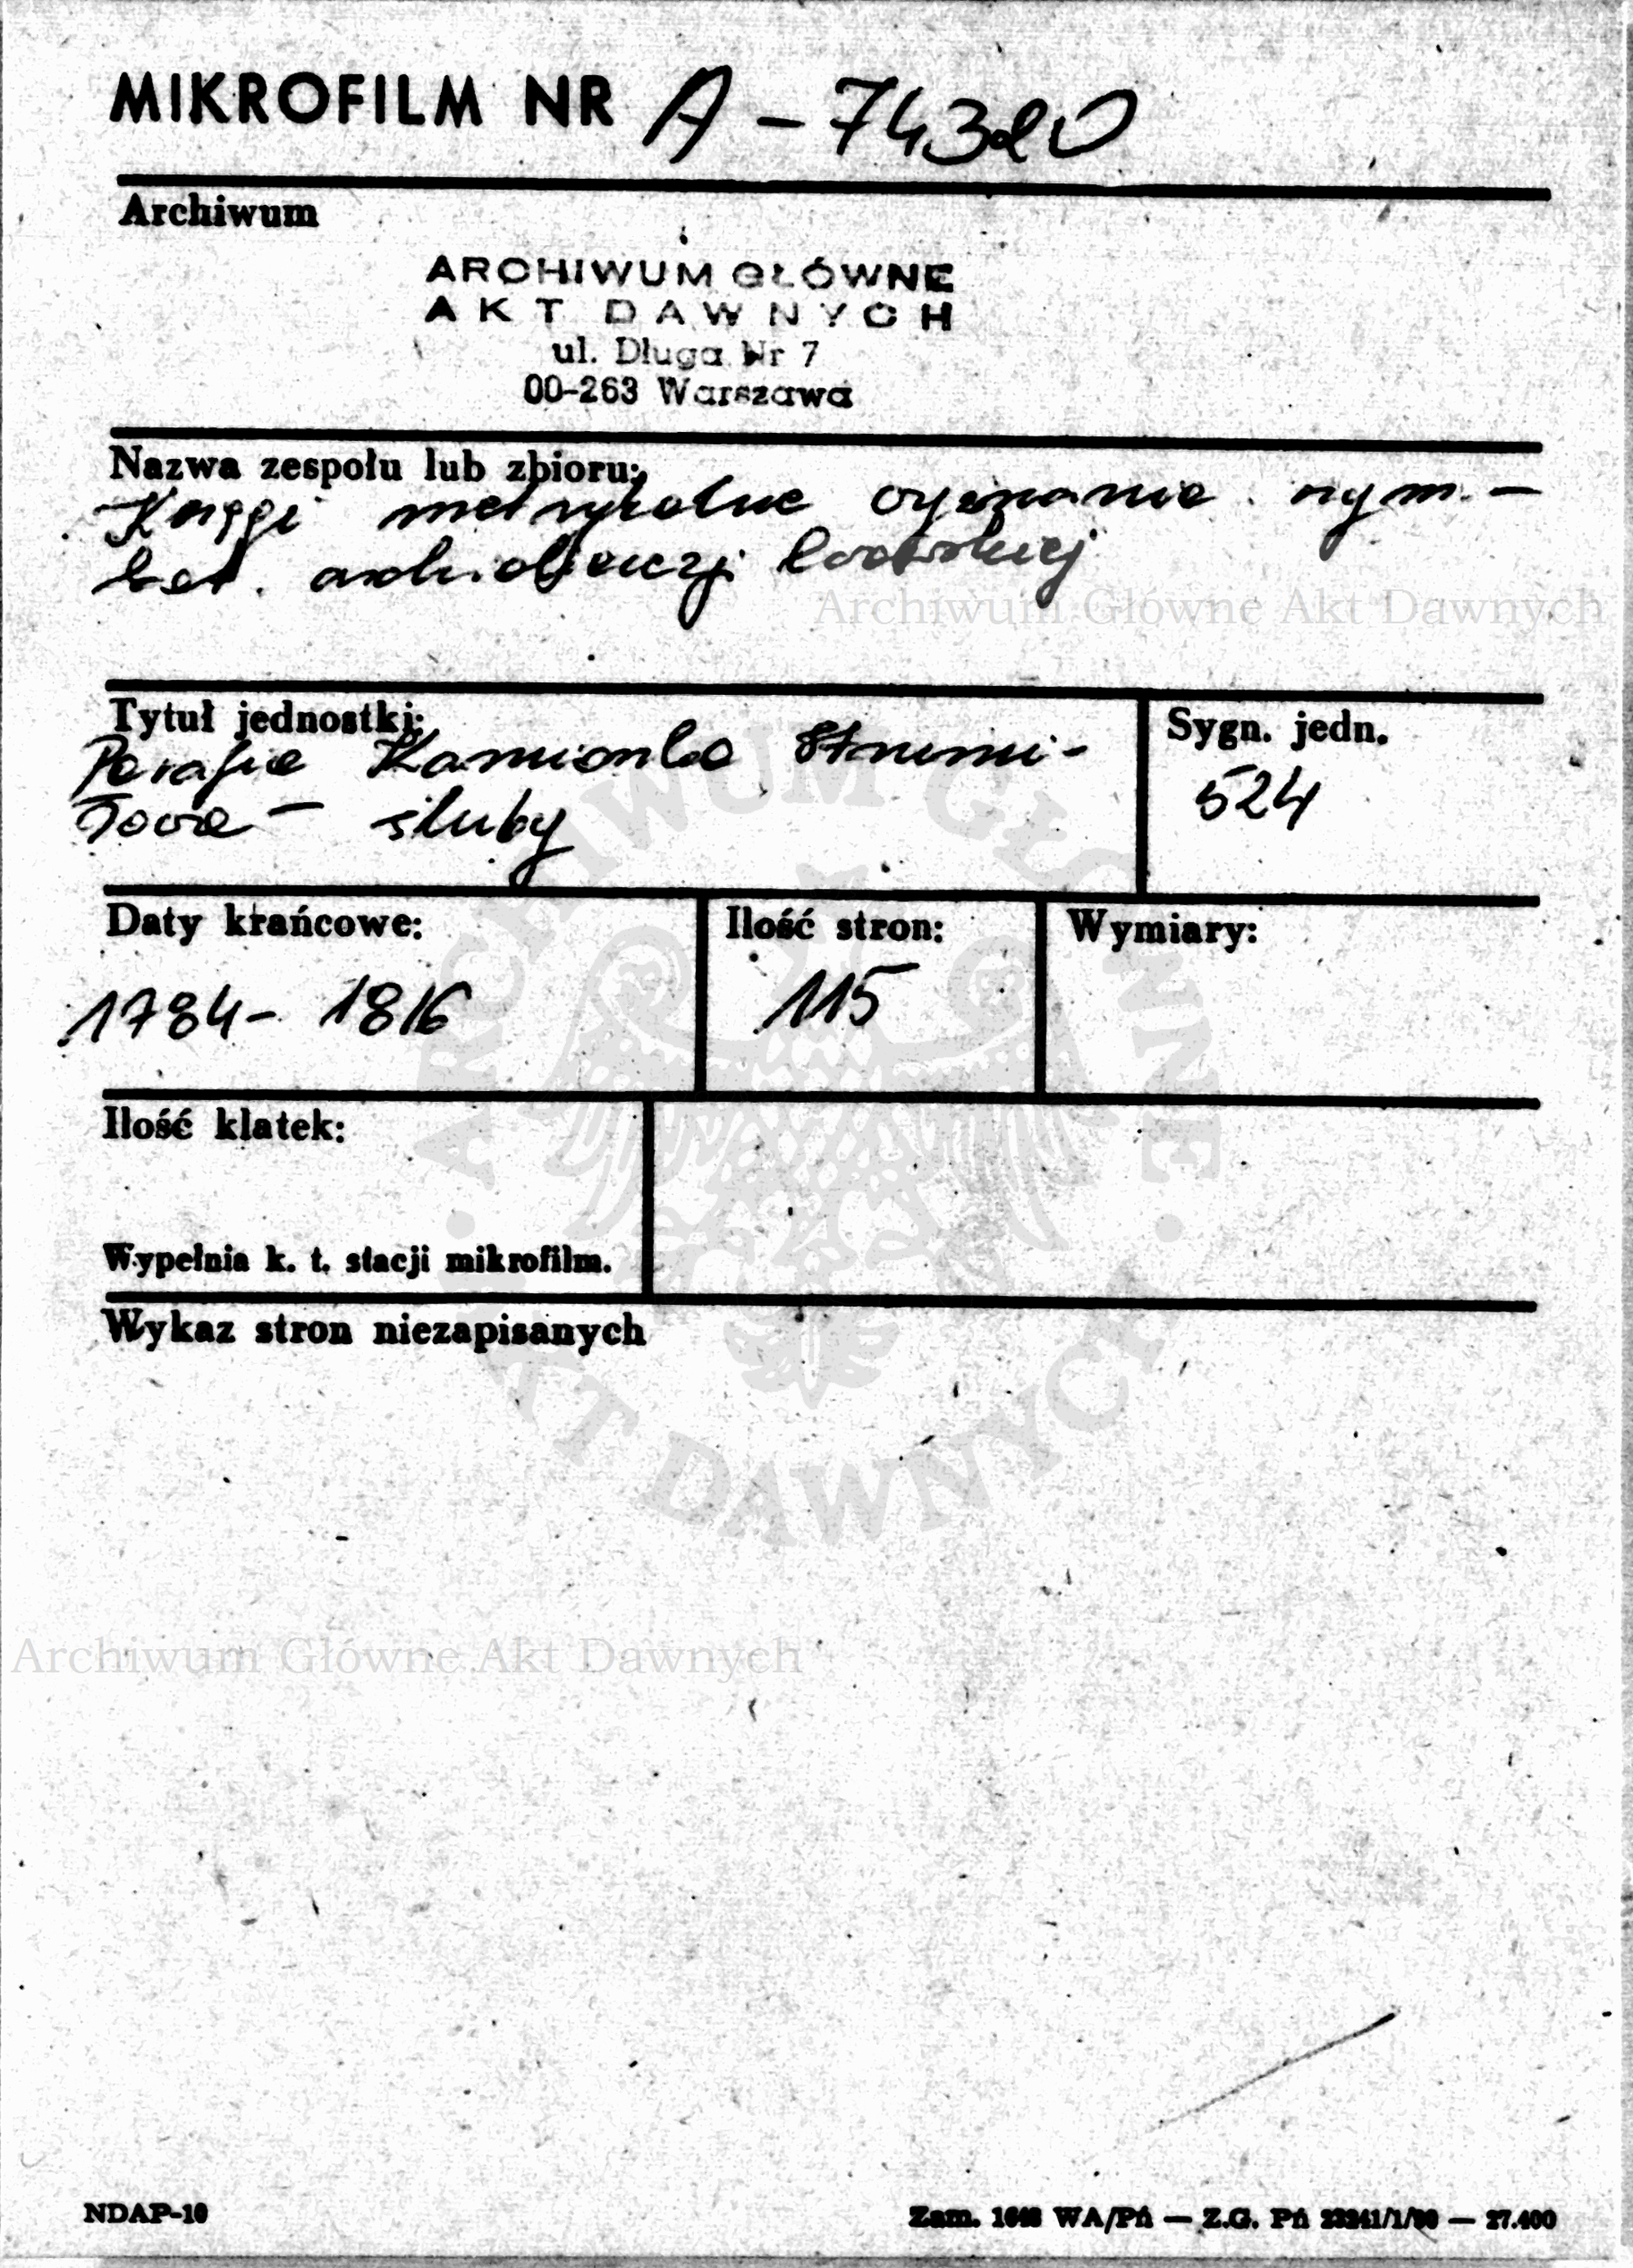 MIKROFILM NR A - 74320
Archiwum
ARCHIWUM GŁÓWNE
AKT DAWNYCH
ul. Długa Nr 7
00-263 Warszawa
Nazwa zespołu lub zbioru:
Księgi metrykalne wyznania rzym. -
kat. archidiecezji lwowskiej
Archiwum Główne Akt Dawnych
Tytuł jednostki:
Parafia Kamionka Strumi-
łowa - śluby
Sygn. jedn.
524
Daty krańcowe:
1784 - 1816
Ilość stron:
115
Wymiary:
Ilość klatek:
Wypełnia k. t. stacji mikrofilm.
Wykaz stron niezapisanych
ARCHIWUM GŁÓWNE · AKT DAWNYCH ·
Archiwum Główne Akt Dawnych
NDAP-10
Zam. WA/Pń — Z.G. Pń — 27.400